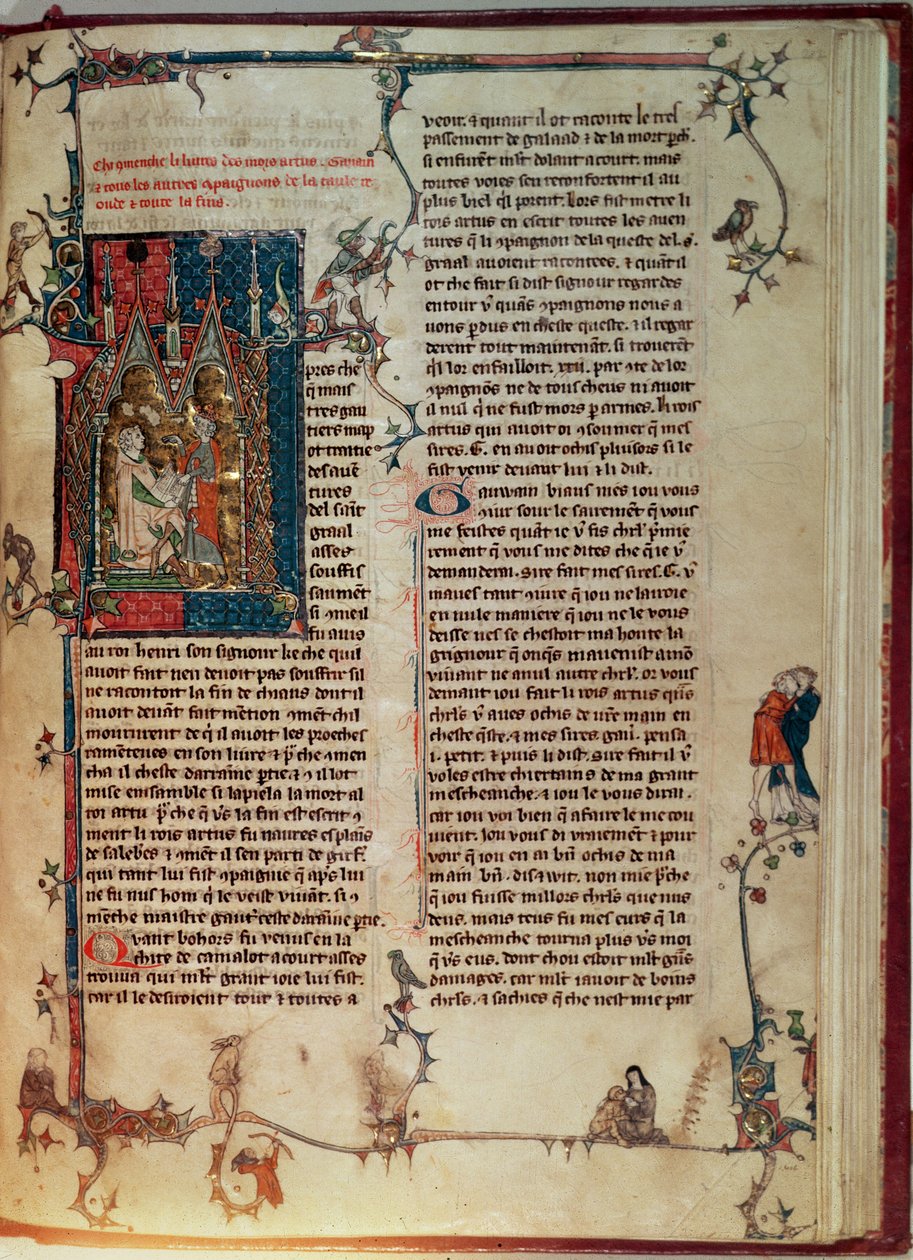 Chi ꝯmenche li liures des mors artus. Gauain
⁊ tous les autres ꝯpaignons de la taule re
onde ⁊ toute la fins.
pres che
q̄ mais
tres gau
tiers map
ot traitie
des auē
tures
del saīt
graal
asses
souffis
saumēt
si ꝯme il
fu auis
au roi henri son signour ke che quil
auoit fait nen deuoit pas souffir sil
ne racontoit la fin de chiaus dont il
auoit deuāt fait mētion ꝯmēt chil
moururent de q̓ il auoit les proeches
ramēteues en son liure ⁊ p̄ che ꝯmen
cha il cheste darraīne ꝑtie. ⁊ ꝯ il lot
mise ensamble si lapiela la mort al
roi artu p̄ che q̄ v̓s la fin est escrit ꝯ
ment li rois artus fu naures es plaīs
de saleb̓es ⁊ ꝯmēt il sen parti de girf.
qui tant lui fist ꝯpaignie q̄ ap̓s lui
ne fu nus hom q̓ le veist viuāt. si ꝯ
mēche maistre gaut̓ ceste daraīne ꝑtie.
Quant bohors fu venus en la
chite de camalot a court asses
trouua qui ml̓t grant ioie lui fist.
car il le desiroient tout ⁊ toutes a
veoir. ⁊ quant il ot raconte le tres
passement de galaad ⁊ de la mort ꝑch̄.
si en furēt ml̓t dolant a court. mais
toutes voies sen reconfortent il au
plus biel q̓l porent. Lors fist metre li
rois artus en escrit toutes les auen
tures q̄ li ꝯpaignon de la queste del .s̄.
graal auoient racontees. ⁊ quāt il
ot che fait si dist signour regardes
entour v̓ quās ꝯpaignons nous a
uons ꝑdus en cheste queste. ⁊ il regar
derent tout maintenāt. si trouerēt
q̓l lor en failloit .xxii. par ꝯte de lor
ꝯpaignōs ne de tous cheus ni auoit
il nul q̓ ne fust mors ꝑ armes. li rois
artus qui auoit oi ꝯsounier q̄ mes
sires .G. en auoit ochis plusors si le
fist venir deuant lui ⁊ li dist.
Gauwain biaus nies iou vous
ꝯiur sour le sairement q̄ vous
me feistes quāt ie v̓ fis chr̓l p̓mie
rement q̄ vous me dites che q̄ ie v̓
demanderai. Sire fait mes sires .G. v̓
maues tant ꝯiure q̄ iou ne lairoie
en nule maniere q̄ iou ne le vous
desisse nes se chestoit ma honte la
grignour q̄ onq̄s mauenist a mō
viuant ne a nul autre chr̓l. or vous
demant iou fait li rois artus quās
chr̓ls v̓ aues ochis de vr̄e main en
cheste q̄ste. ⁊ mes sires gau. pensa
.i. petit. ⁊ puis li dist. Sire fait il v̓
voles estre chiertains de ma grant
mescheanche. ⁊ iou le vous dirai.
car iou voi bien q̄ a faire le me cou
uient. Iou vous di vraiemēt ⁊ pour
voir q̄ iou en ai bn̄ ochis de ma
main bn̄ .dis ⁊ wit. non mie p̄ che
q̄ iou fuisse millors chr̓ls que nus
deus. mais teus fu mes eurs q̄ la
mescheanche tourna plus v̓s moi
q̄ v̓s eus. dont chou estoit ml̓t grās
damages. car ml̓t i auoit de boins
chr̓ls. ⁊ sachies q̄ che nest mie par